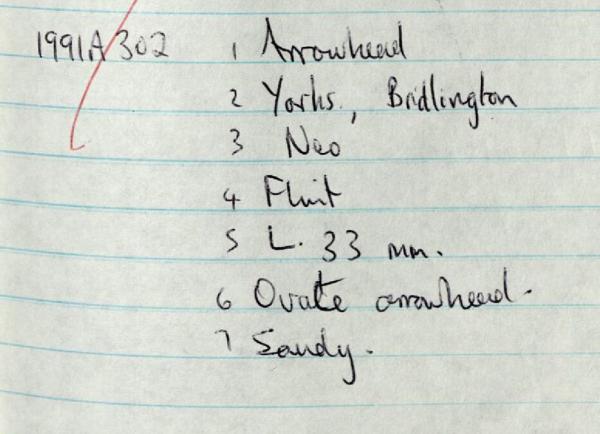 1991A 302 1 Arrowhead
2 Yorks., Bridlington
3 Neo
4 Flint
5 L. 33 mm.
6 Ovate arrowhead.
7 Sandy.